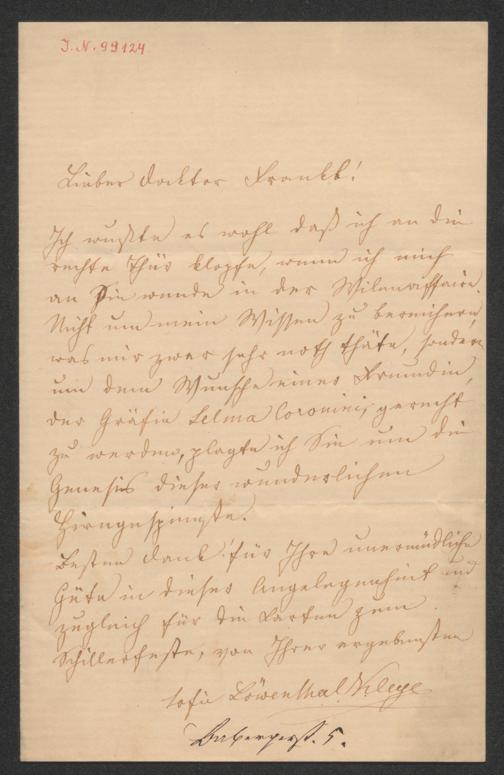 J. N. 99124
Lieber Doktor Frankl!
Ich wußte es wohl daß ich an die
rechte Thür klopfe, wenn ich mich
an Sie wende in der
Nicht um mein Wissen zu bereichern,
was mir zwar sehr noth thäte, sondern
um dem Wunsche einer Freundin,
der Gräfin Selma Coronini, gerecht
zu werden, plagte ich Sie um die
Genesis dieser wunderlichen
Hirngespinnste.
Besten Dank für Ihre unermüdliche
Güte in dieser Angelegenheit und
zugleich für die Karten zum
Schillerfeste, von Ihrer ergebensten
Sofie Löwenthal Kleyle
5.